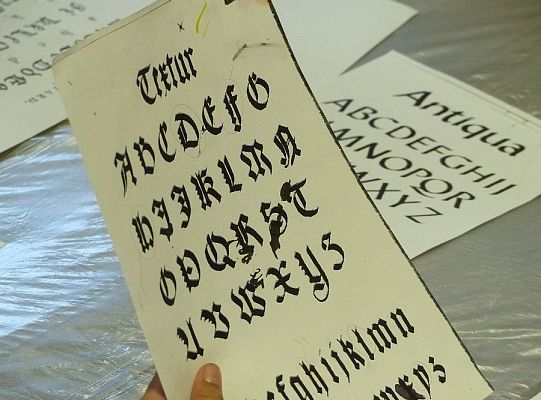 Textur
ABCDEFG
HIJKLMN
OPQRST
UVWXYZ
efghijklmn
xyz
Antiqua
ABCDEFGHIJ
MNOPQR
WXYZ